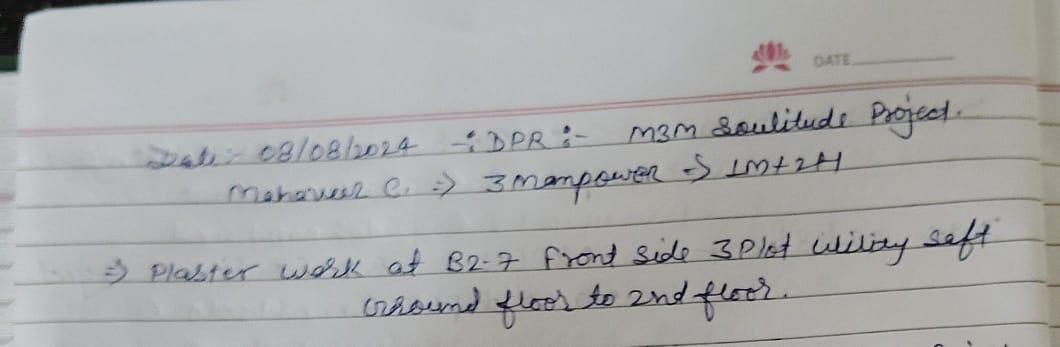 DATE
Date:- 08/08/2024 -: DPR :- M3M Soulitude Project.
Mahaveer C. => 3 manpower -> 1M+2H
=> Plaster work at B2-7 front side 3 Plot utility saft
Ground floor to 2nd floor.